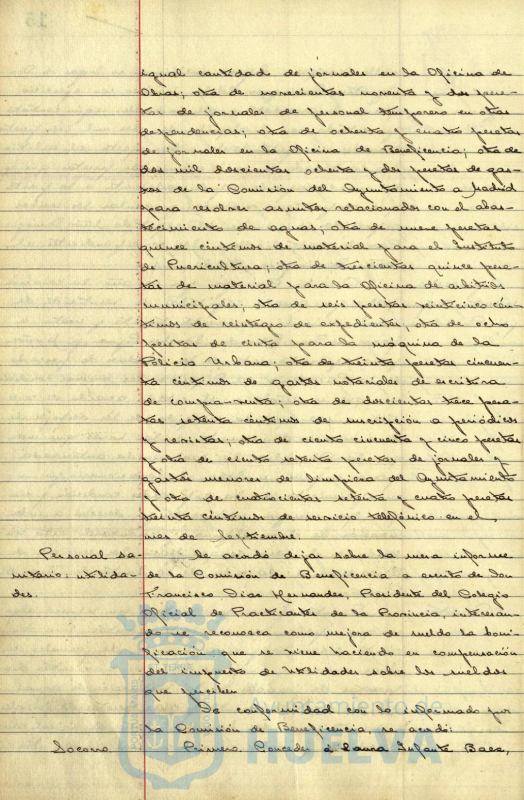 igual cantidad de jornales en la Oficina de
Obras; otra de novecientas noventa y dos pese-
tas de jornales de personal temporero en otras
dependencias; otra de ochenta y cuatro pesetas
de jornales en la Oficina de Beneficencia; otra de
dos mil doscientas ochenta y dos pesetas de gas-
tos de la Comisión del Ayuntamiento a Madrid
para resolver asuntos relacionados con el abas-
tecimiento de aguas; otra de nueve pesetas
quince céntimos de material para el Instituto
de Puericultura; otra de trescientas quince pese-
tas de material para la Oficina de arbitrios
municipales; otra de seis pesetas veinticinco cén-
timos de reintegro de expedientes; otra de ocho
pesetas de cinta para la máquina de la
Policía Urbana; otra de treinta pesetas cincuen-
ta céntimos de gastos notariales de escritura
de compra-venta; otra de doscientas trece pese-
tas setenta céntimos de suscripción a periódicos
y revistas; otra de ciento cincuenta y cinco pesetas
y otra de ciento setenta pesetas de jornales y
gastos menores de limpieza del Ayuntamiento
y otra de cuatrocientas setenta y cuatro pesetas
treinta céntimos de servicio telefónico en el
mes de Septiembre.
Personal sa-
nitario: utilida-
des.
Se acordó dejar sobre la mesa informe
de la Comisión de Beneficencia a escrito de don
Francisco Díaz Hernández, Presidente del Colegio
Oficial de Practicantes de la Provincia, interesan-
do se reconozca como mejora de sueldo la boni-
ficación que se viene haciendo en compensación
del impuesto de Utilidades sobre los sueldos
que perciben.
De conformidad con lo informado por
la Comisión de Beneficencia, se acordó:
Socorro
Primero. Conceder á Laura Infante Baez,
HUELVA